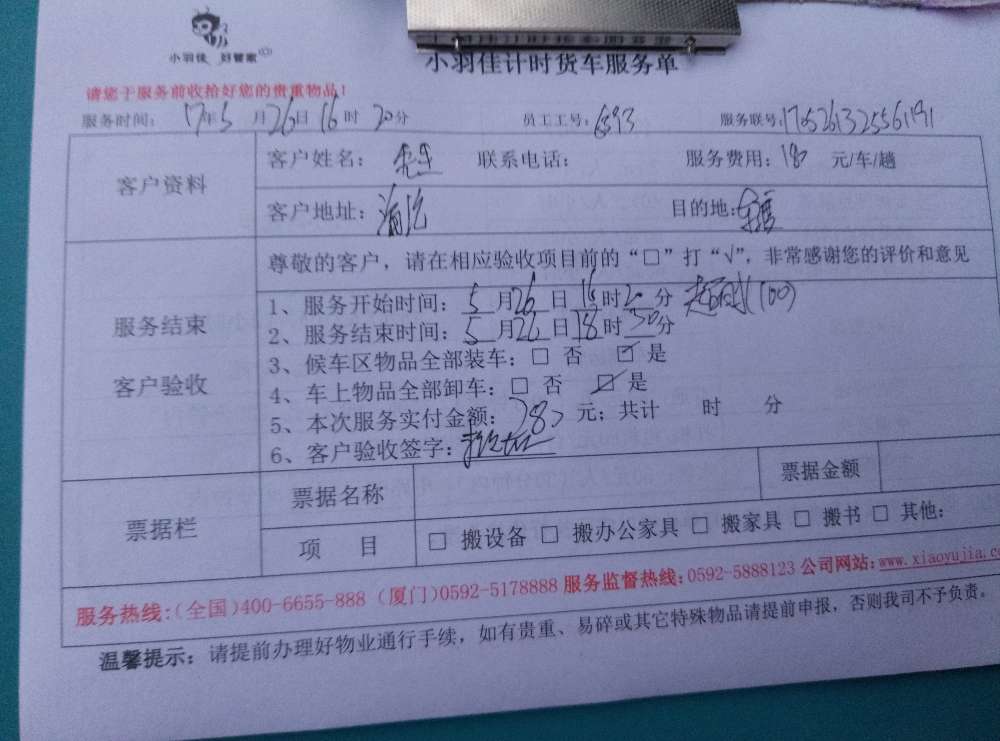 小羽佳 好管家
小羽佳计时货车服务单
请您于服务前收拾好您的贵重物品！
服务时间： 17年5月26日16时20分 员工工号：6593 服务联号：1705261325561191
客户资料
客户姓名： 联系电话： 服务费用：180 元/车/趟
客户地址： 目的地：
服务结束
客户验收
尊敬的客户，请在相应验收项目前的“□”打“√”，非常感谢您的评价和意见
1、服务开始时间：5月26日16时20分 (100)
2、服务结束时间：5月26日18时30分
3、候车区物品全部装车：□ 否 ☑ 是
4、车上物品全部卸车：□ 否 ☑ 是
5、本次服务实付金额：280元；共计 时 分
6、客户验收签字：
票据栏
票据名称 票据金额
项 目 □ 搬设备 □ 搬办公家具 □ 搬家具 □ 搬书 □ 其他：
服务热线：（全国）400-6655-888（厦门）0592-5178888 服务监督热线：0592-5888123 公司网站：www.xiaoyujia.co
温馨提示：请提前办理好物业通行手续，如有贵重、易碎或其它特殊物品请提前申报，否则我司不予负责。